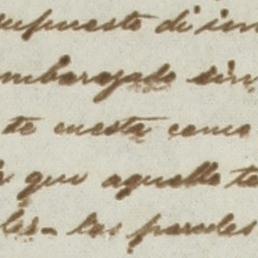 supuesto di
embarazado sin
te cuesta como
que aquella te
las paredes